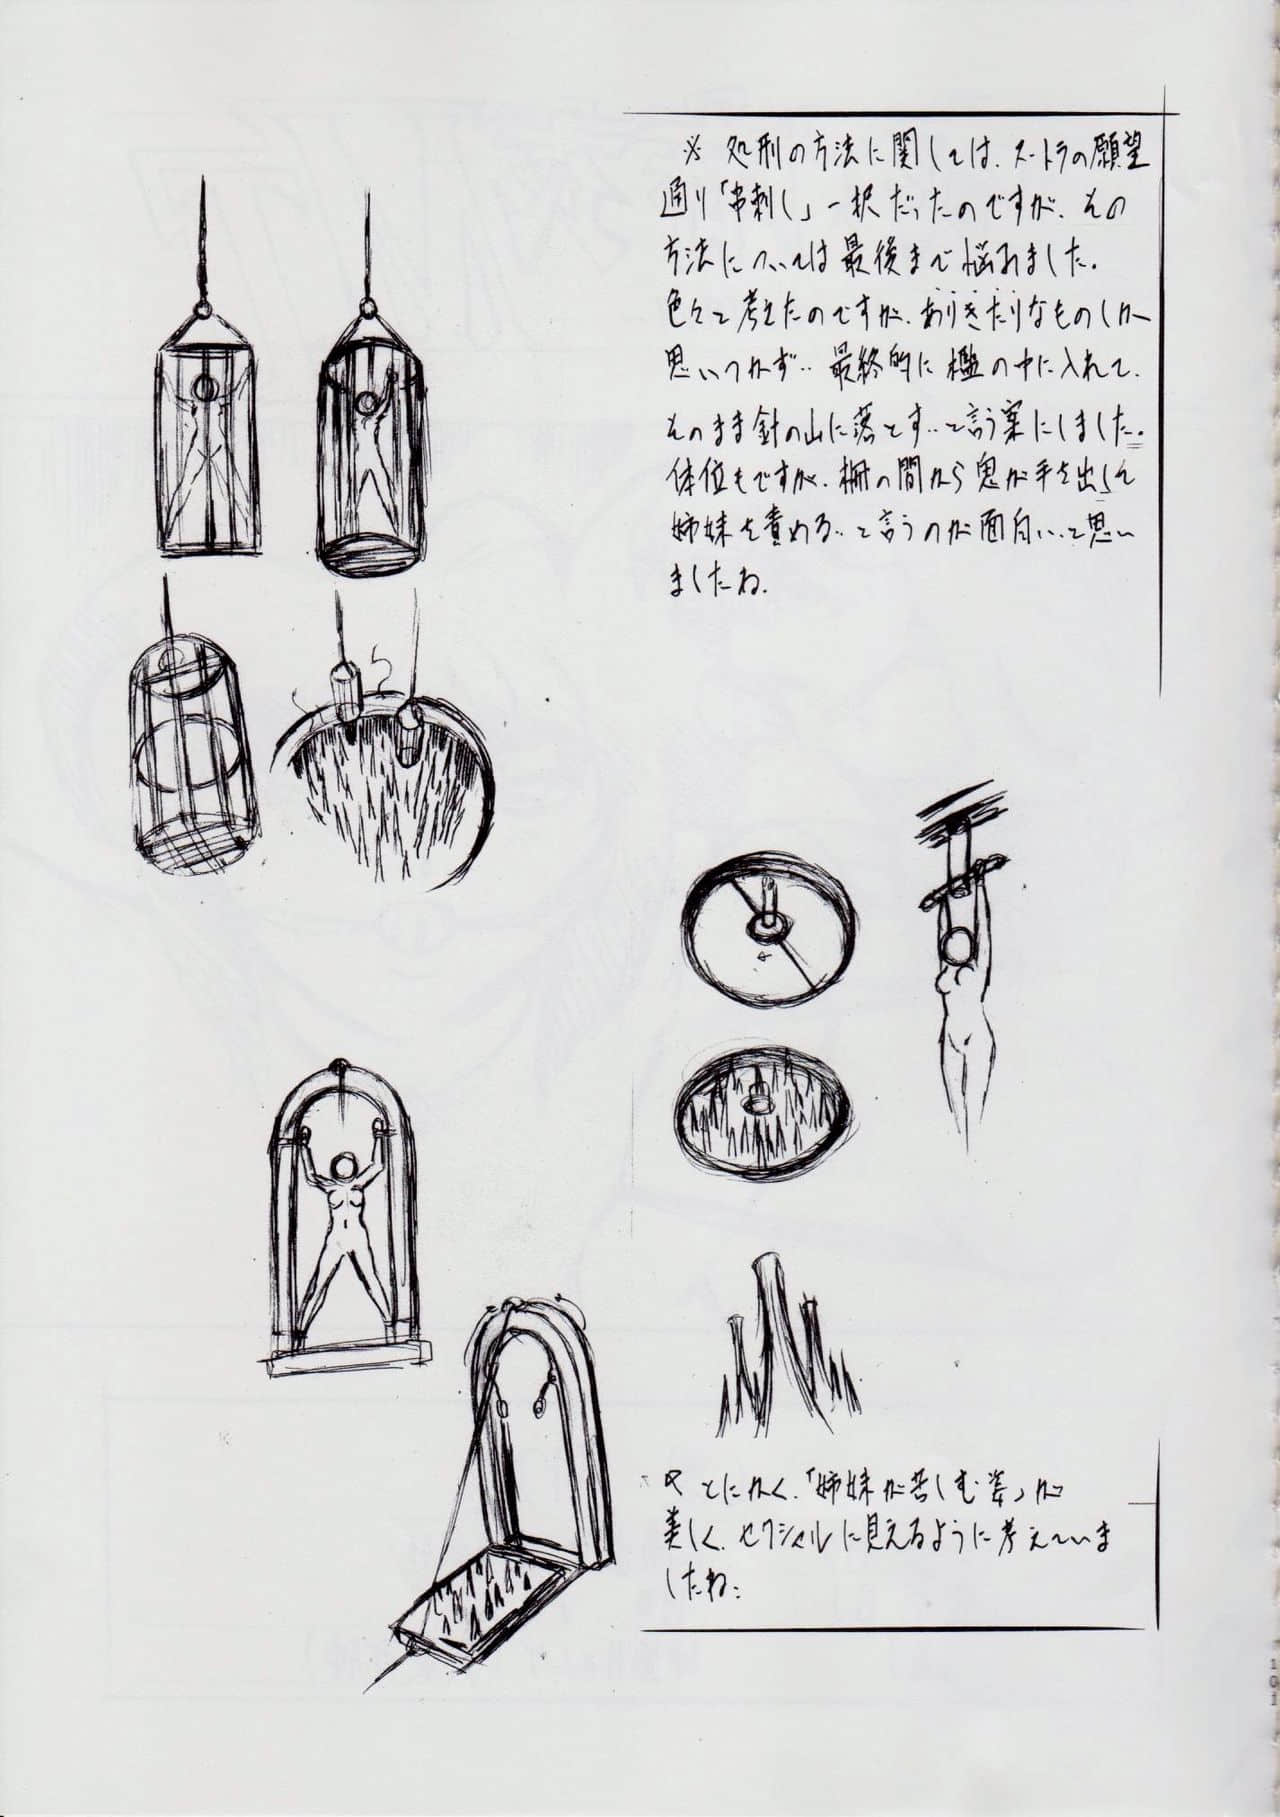 ※ 処刑の方法に関しては、スートラの願望
通り「串刺し」一択だったのですが、その
方法については最後まで悩みました。
色々と考えたのですが、ありきたりなものしか
思いつかず‥最終的に檻の中に入れて、
そのまま針の山に落とす‥と言う案にしました。
体位もですが、柵の間から鬼が手を出して
姉妹を責める‥と言うのが面白いと思い
ましたね。
とにかく、「姉妹が苦しむ姿」が
美しく、セクシャルに見えるように考えていま
したね‥
101